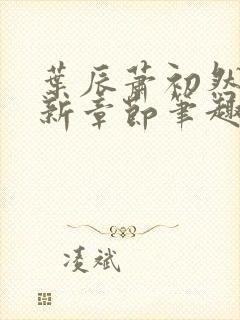 葉辰蕭初然
新章節筆趣
凌斌